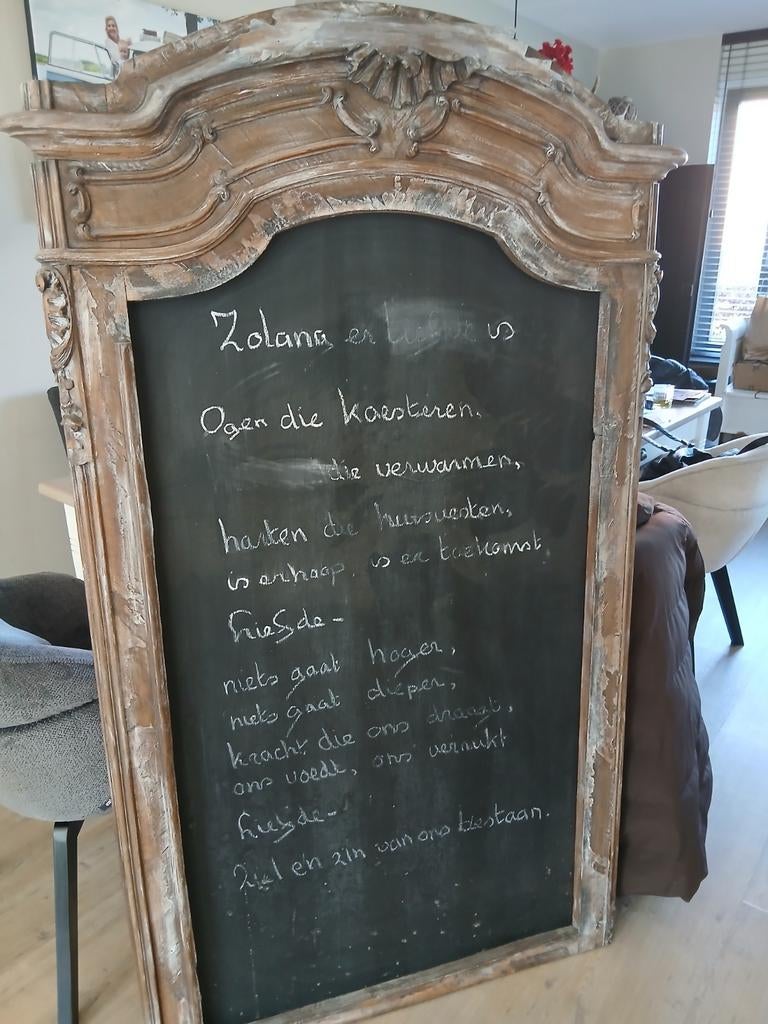 Zolang er is
Ogen die koesteren,
die verwarmen,
harten die huisvesten,
is er hoop, is er toekomst.
Liefde-
niets gaat hoger,
niets gaat dieper,
kracht die ons draagt,
ons voedt, ons verrukt
Liefde-
Ziel en zin van ons bestaan.